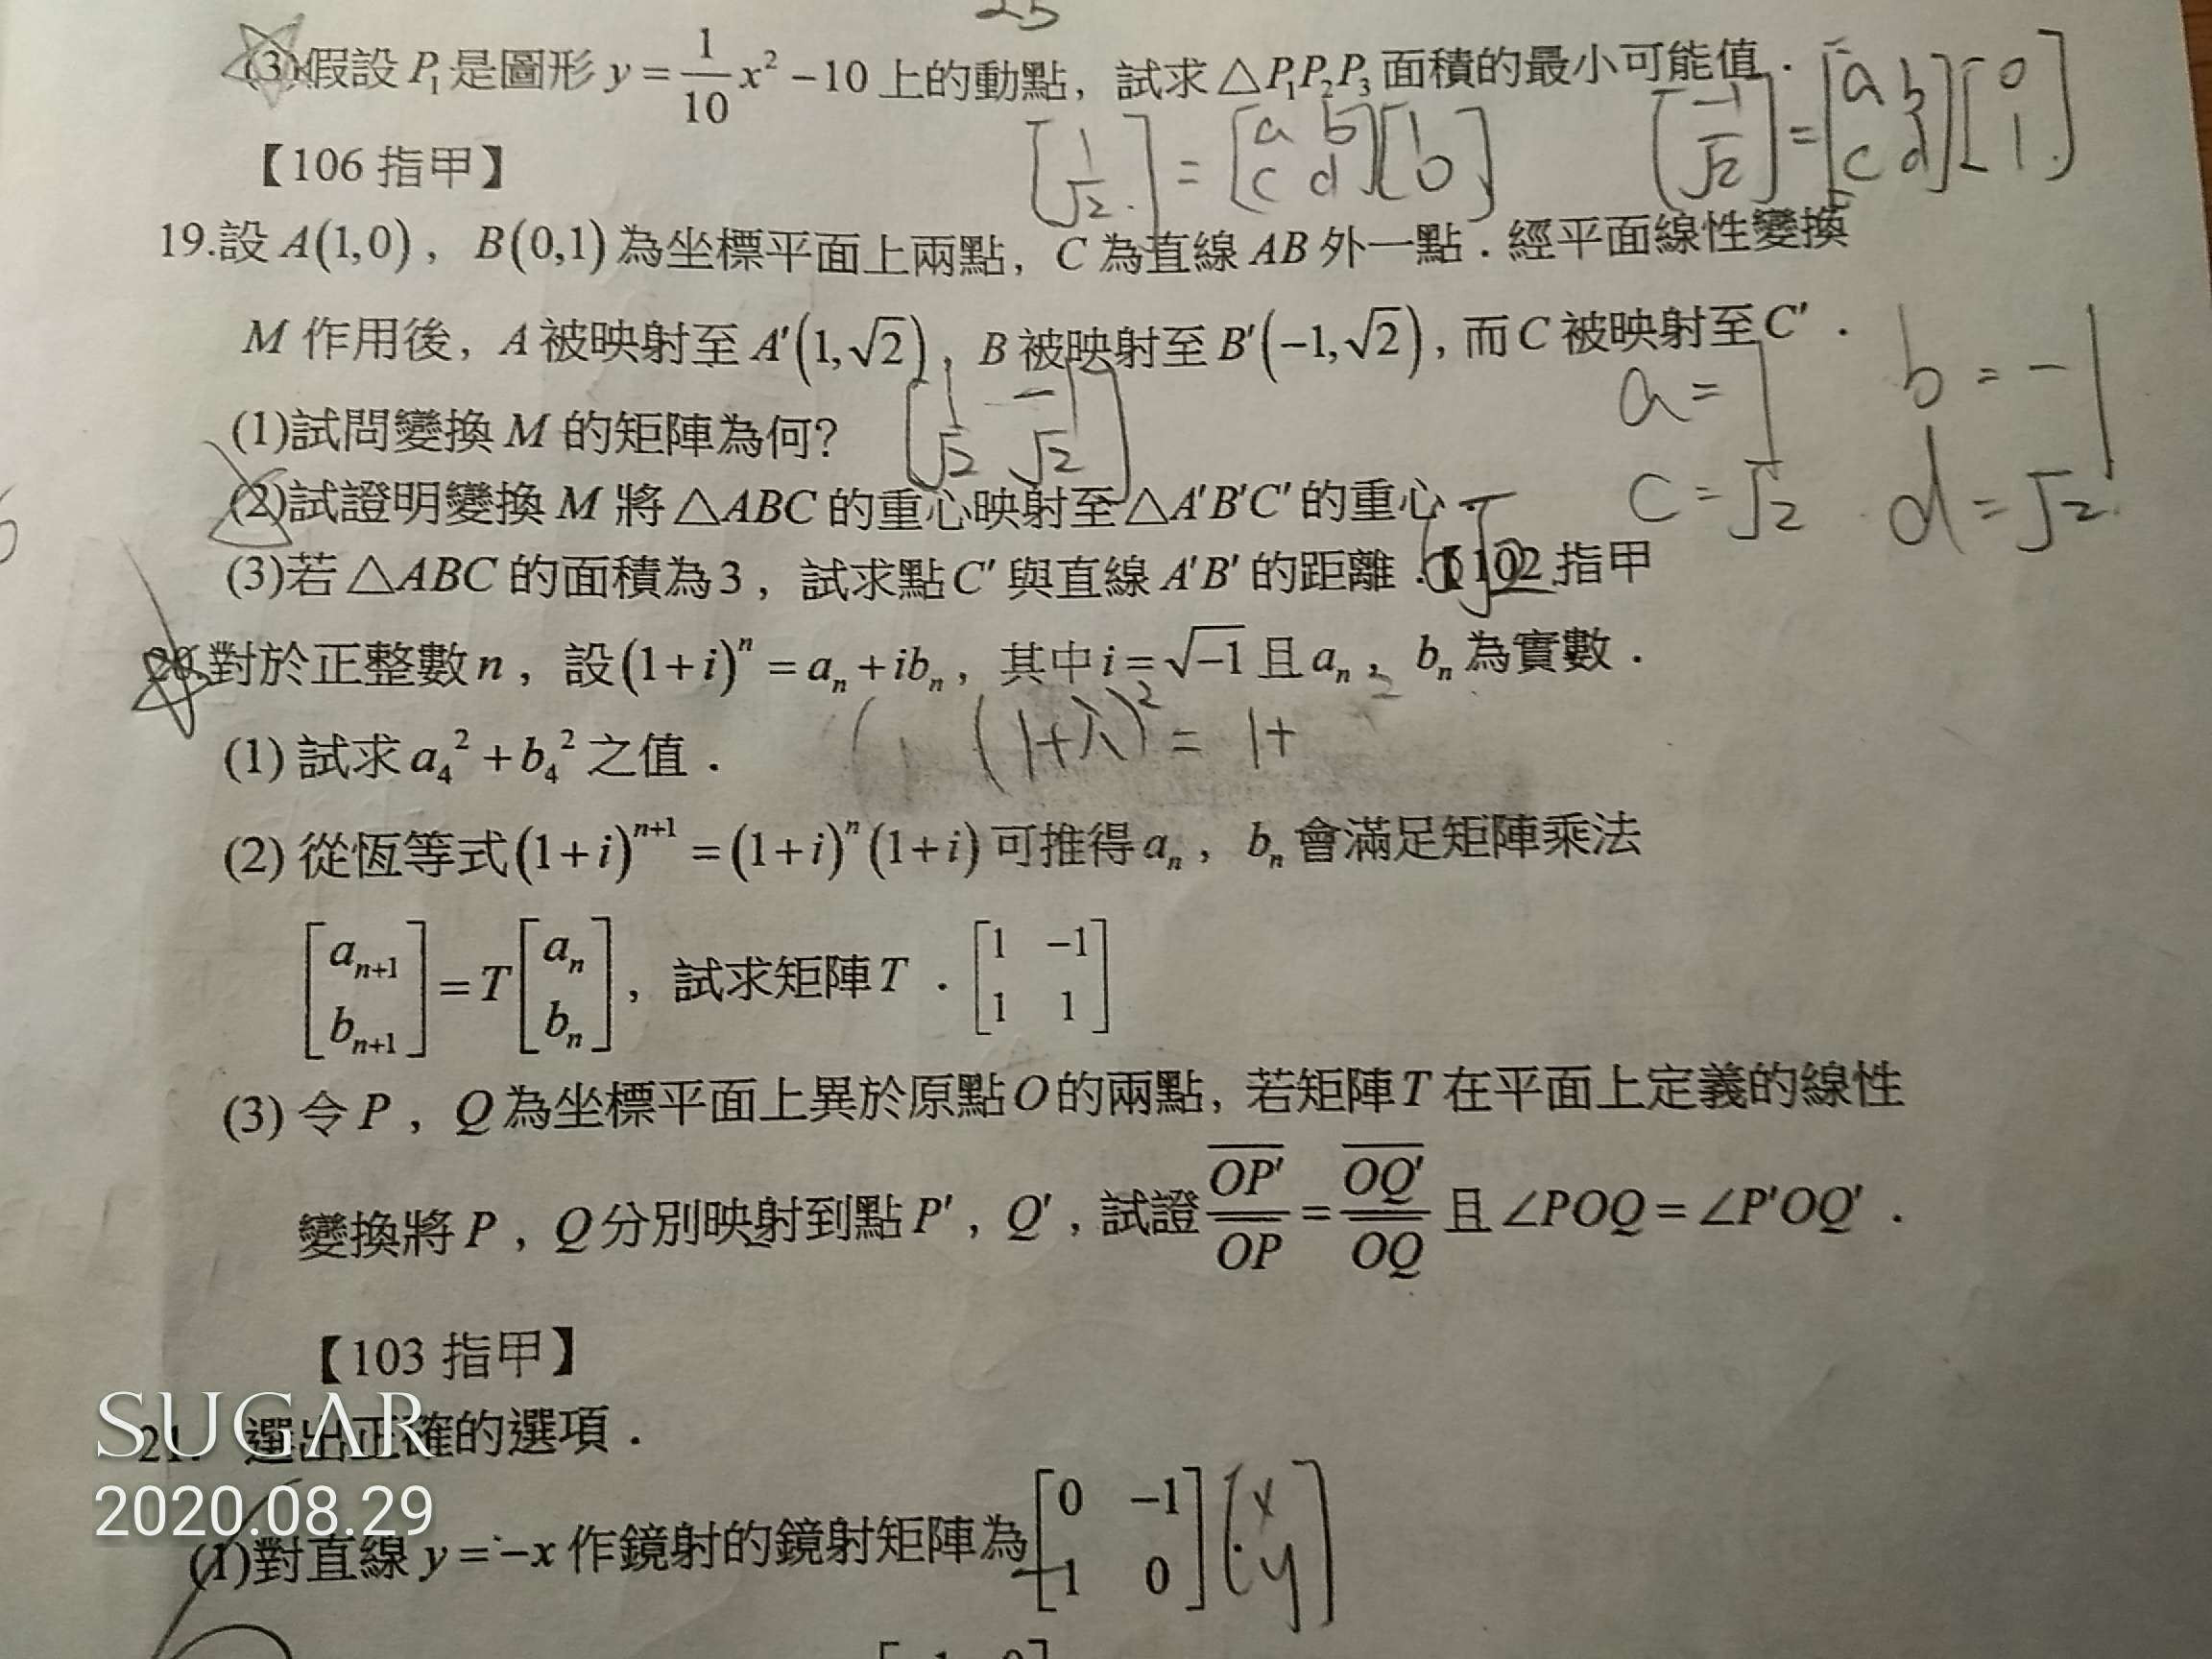 25
(3)假設 P₁ 是圖形 y = 1/10 x² − 10 上的動點，試求 △P₁P₂P₃ 面積的最小可能值．
【106 指甲】
[1 √2] = [a b c d][1 0]
[-1 √2] = [a b c d][0 1]
19.設 A(1,0)， B(0,1) 為坐標平面上兩點，C 為直線 AB 外一點．經平面線性變換
M 作用後，A 被映射至 A′(1,√2)，B 被映射至 B′(−1,√2)，而 C 被映射至 C′．
a = 1 b = -1
(1)試問變換 M 的矩陣為何? [1 -1 √2 √2]
c = √2 d = √2
(2)試證明變換 M 將 △ABC 的重心映射至 △A′B′C′ 的重心．
(3)若 △ABC 的面積為 3，試求點 C′ 與直線 A′B′ 的距離．【102 指甲 6√2
20.對於正整數 n，設 (1+i)ⁿ = aₙ + ibₙ，其中 i = √−1 且 aₙ，bₙ 為實數．
(1) 試求 a₄² + b₄² 之值． (1+i)² = 1+
(2) 從恆等式 (1+i)ⁿ⁺¹ = (1+i)ⁿ(1+i) 可推得 aₙ，bₙ 會滿足矩陣乘法
[aₙ₊₁ bₙ₊₁] = T[aₙ bₙ]，試求矩陣 T．[1 −1 1 1]
(3) 令 P，Q 為坐標平面上異於原點 O 的兩點，若矩陣 T 在平面上定義的線性
變換將 P，Q 分別映射到點 P′，Q′，試證 OP′/OP = OQ′/OQ 且 ∠POQ = ∠P′OQ′．
【103 指甲】
21. 選出正確的選項．
(1)對直線 y = −x 作鏡射的鏡射矩陣為 [0 −1 −1 0] [x y]
SUGAR
2020.08.29